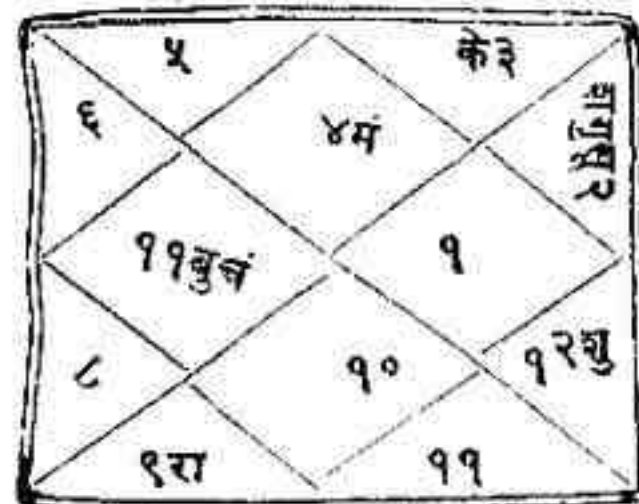 ५
के३
६
४मं
११बुचं
१
८
१०
१२शु
९रा
११